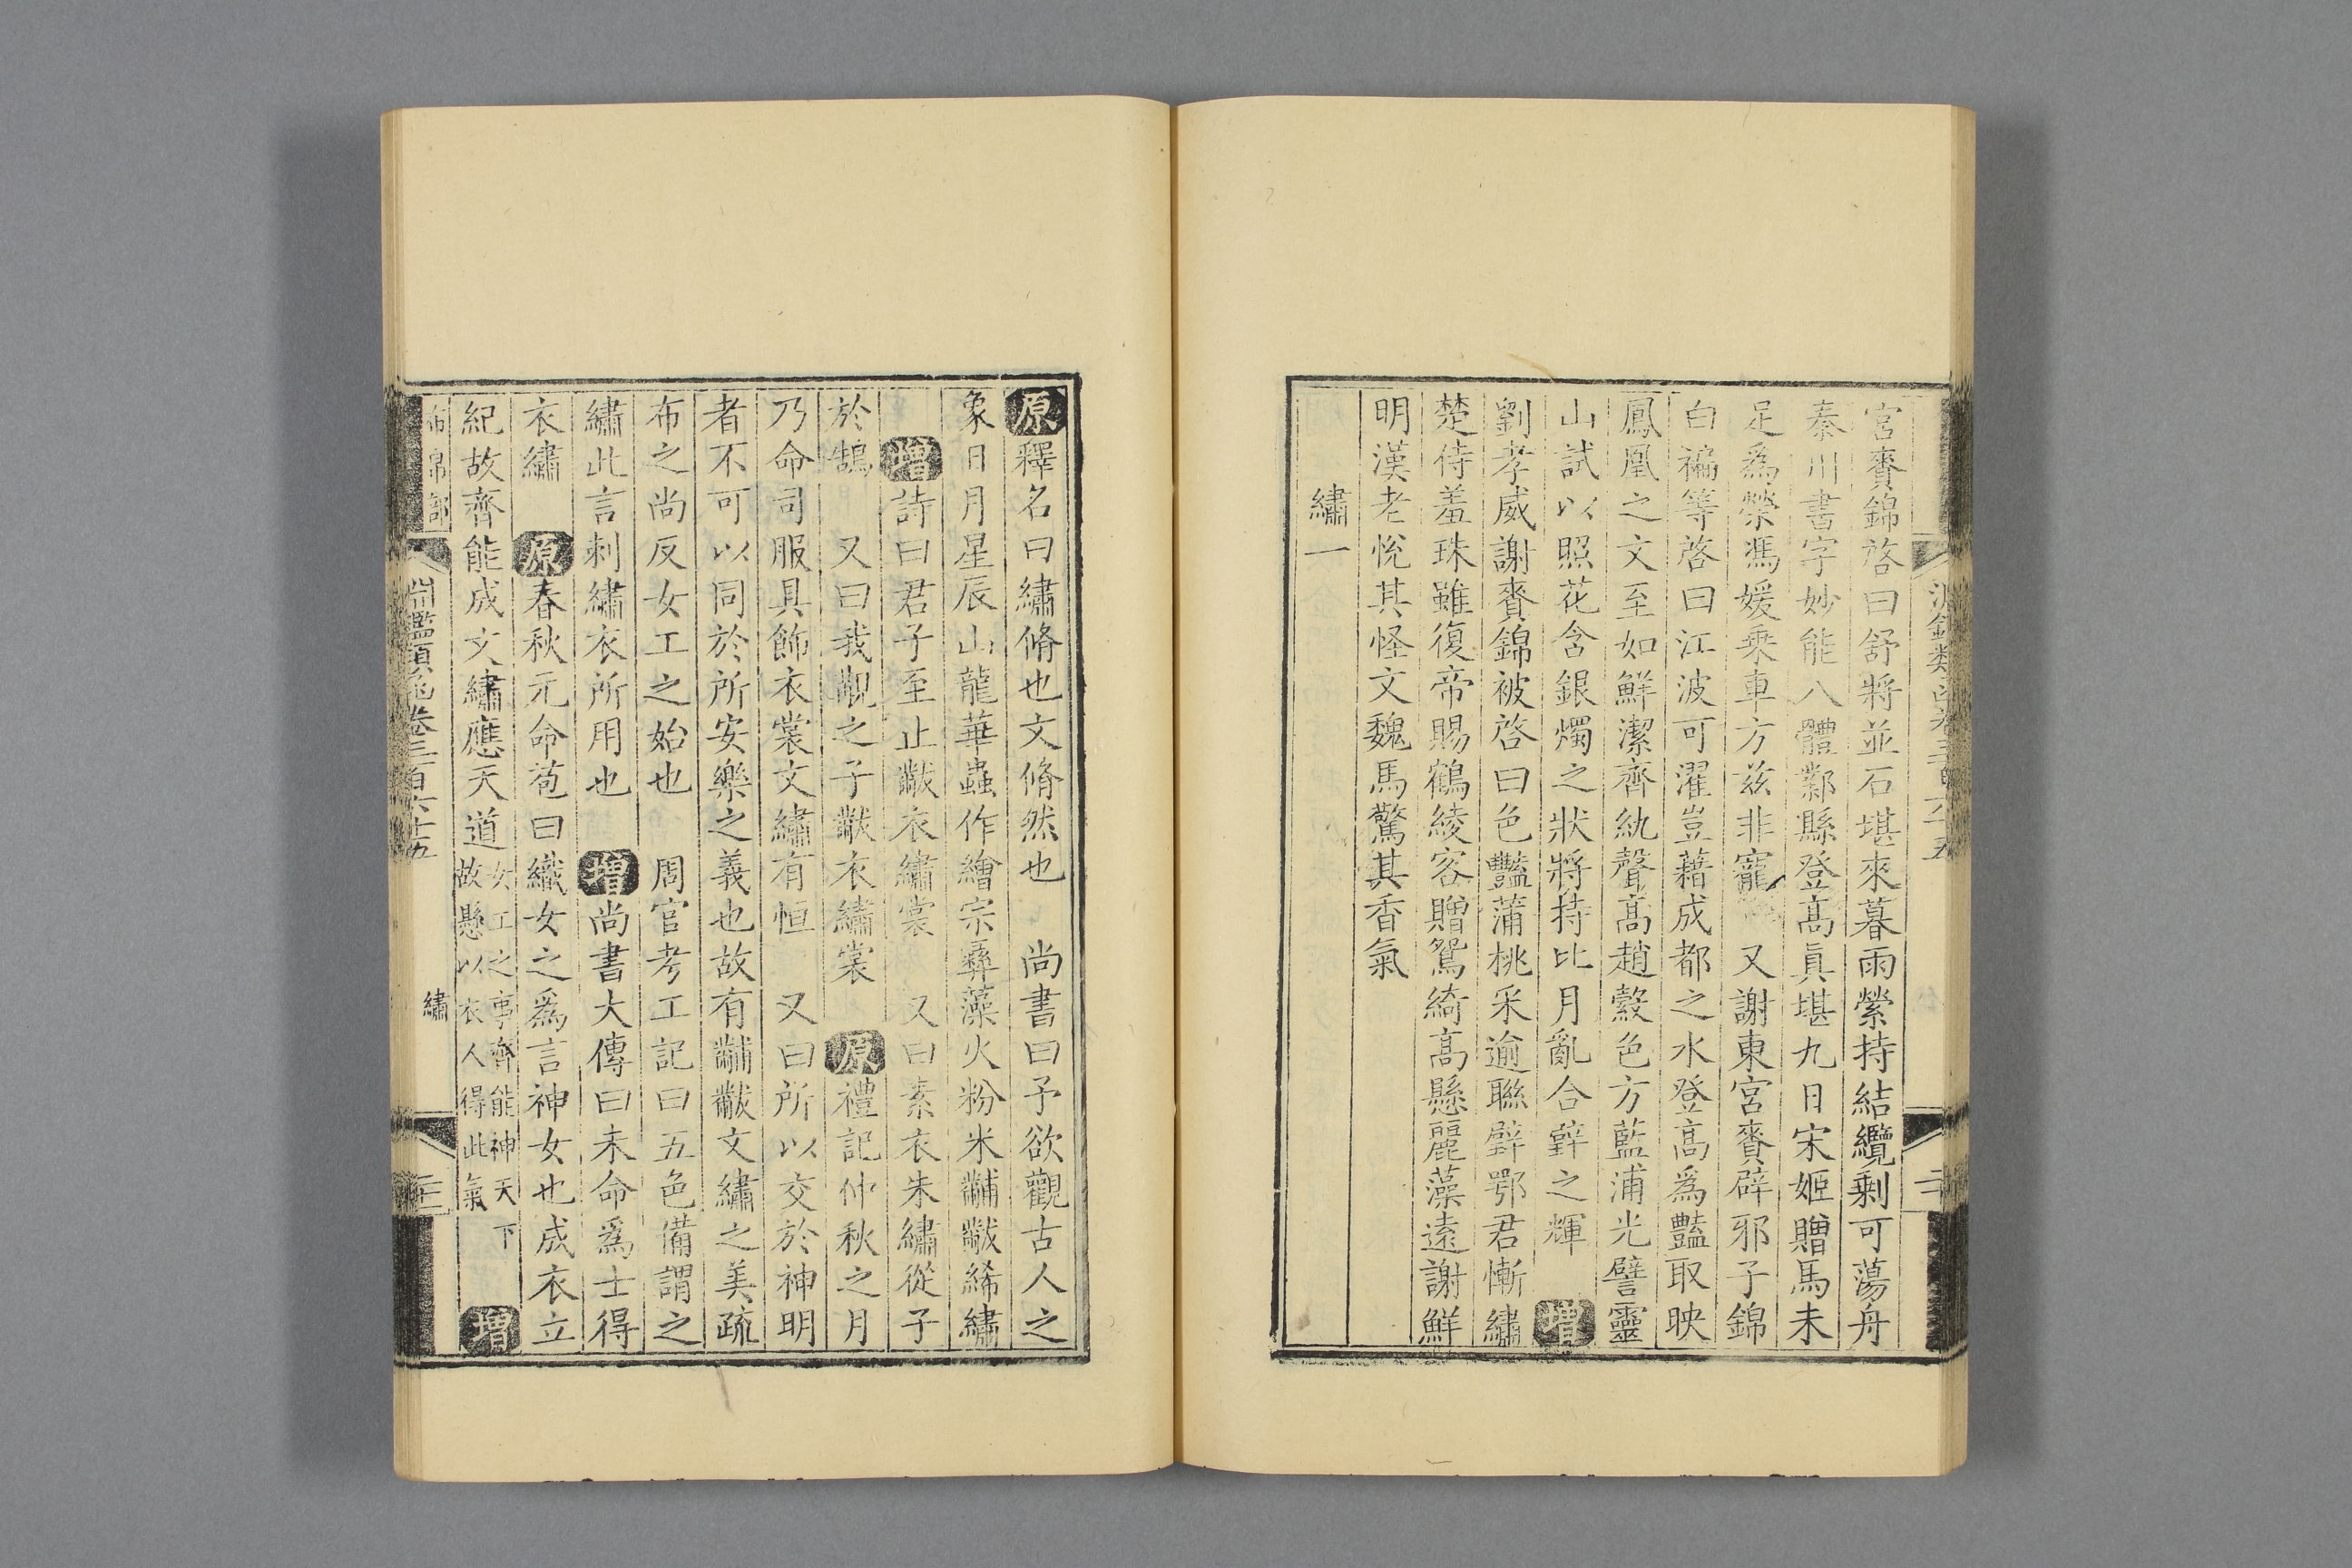 宮賚錦啓曰舒將並石堪來暮雨縈持結纜剩可蕩舟
秦川書字妙能八體鄴縣登高眞堪九日宋姬贈馬未
足爲榮馮媛乗車方兹非寵 又謝東宮賚辟邪子錦
白褊等啓曰江波可濯豈藉成都之水登高爲豔取映
鳳凰之文至如鮮潔齊紈聲高趙縠色方藍浦光譬靈
山試以照花含銀燭之狀將持比月亂合璧之輝 增
劉孝威謝賚錦被啓曰色豔蒲桃采逾聯璧鄂君慚繡
楚侍羞珠雖復帝賜鶴綾客贈鴛綺高懸麗藻遠謝鮮
明漢老悅其怪文魏馬驚其香氣
繡一
原釋名曰繡脩也文脩然也 尚書曰予欲觀古人之
象日月星辰山龍華蟲作繪宗彝藻火粉米黼黻絺繡
增詩曰君子至止黻衣繡裳 又曰素衣朱繡從子
於鵠 又曰我覯之子黻衣繡裳 原禮記仲秋之月
乃命司服具飾衣裳文繡有恒 又曰所以交於神明
者不可以同於所安樂之義也故有黼黻文繡之美疏
布之尚反女工之始也 周官考工記曰五色備謂之
繡此言刺繡衣所用也 增尚書大傳曰未命爲士得
衣繡 原春秋元命苞曰織女之爲言神女也成衣立
紀故齊能成文繡應天道女工之事齊能神天下故懸以衣人得此氣 增
布帛部
淵鑑類函卷三百六十五
繡